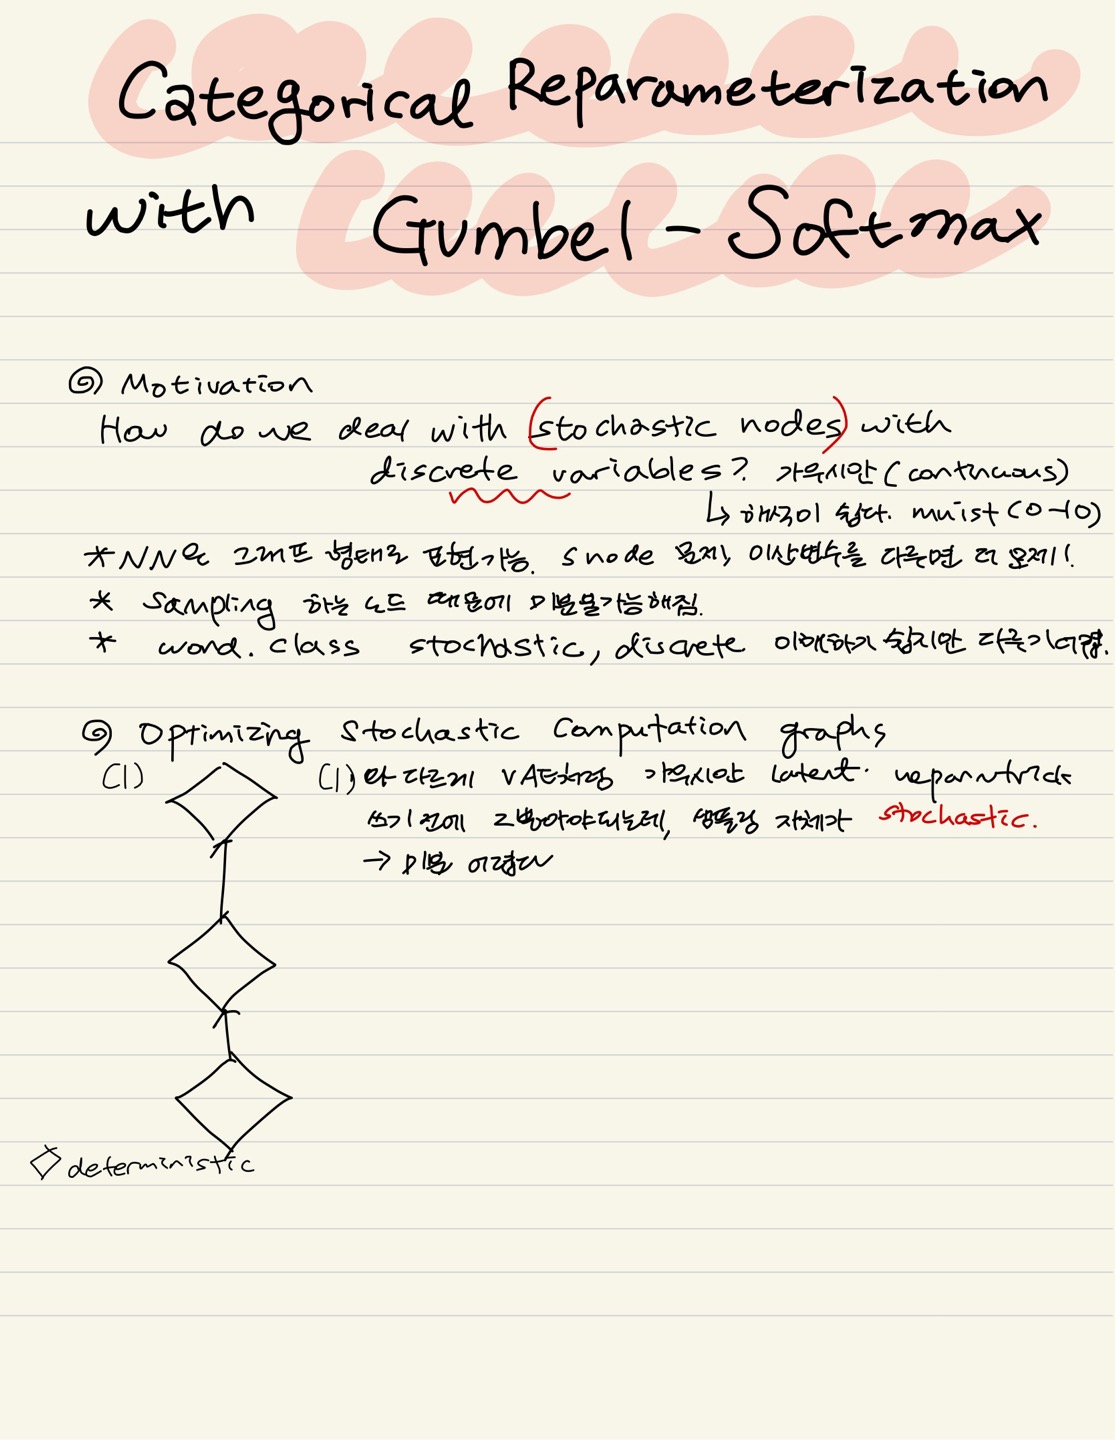 Categorical Reparameterization
with Gumbel-Softmax
◎ Motivation
How do we deal with (stochastic nodes) with
discrete variables? 가우시안 (continuous)
↳ 해석이 쉽다. mnist (0-10)
* NN은 그래프 형태로 표현가능. s node 문제, 이산변수를 다루면 더 문제!!
* Sampling 하는 노드 때문에 미분불가능해짐.
* word. class stochastic, discrete 이해하기 쉽지만 다루기어렵.
◎ Optimizing Stochastic Computation graphs
(1)
(1)와 다르게 VAE처럼 가우시안 latent. reparamtrick
쓰기 전에 z뽑아야되는데, 샘플링 자체가 stochastic.
→ 미분 어렵다
◇ deterministic